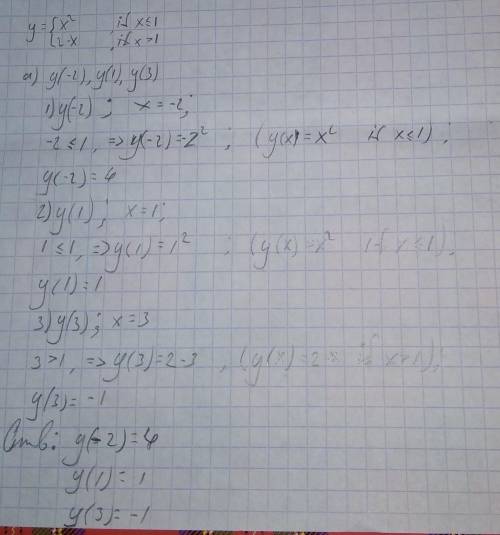 y = { x² , if x ≤ 1
{ 2-x , if x > 1
a) y(-2), y(1), y(3)
1) y(-2) ; x = -2;
-2 ≤ 1, => y(-2) = -2² ; (y(x) = x² if x ≤ 1) ;
y(-2) = 4
2) y(1) ; x = 1;
1 ≤ 1, => y(1) = 1² ; (y(x) = x² if x ≤ 1).
y(1) = 1
3) y(3) ; x = 3
3 > 1, => y(3) = 2-3 , (y(x) = 2-x if x > 1);
y(3) = -1
Отв: y(-2) = 4
y(1) = 1
y(3) = -1